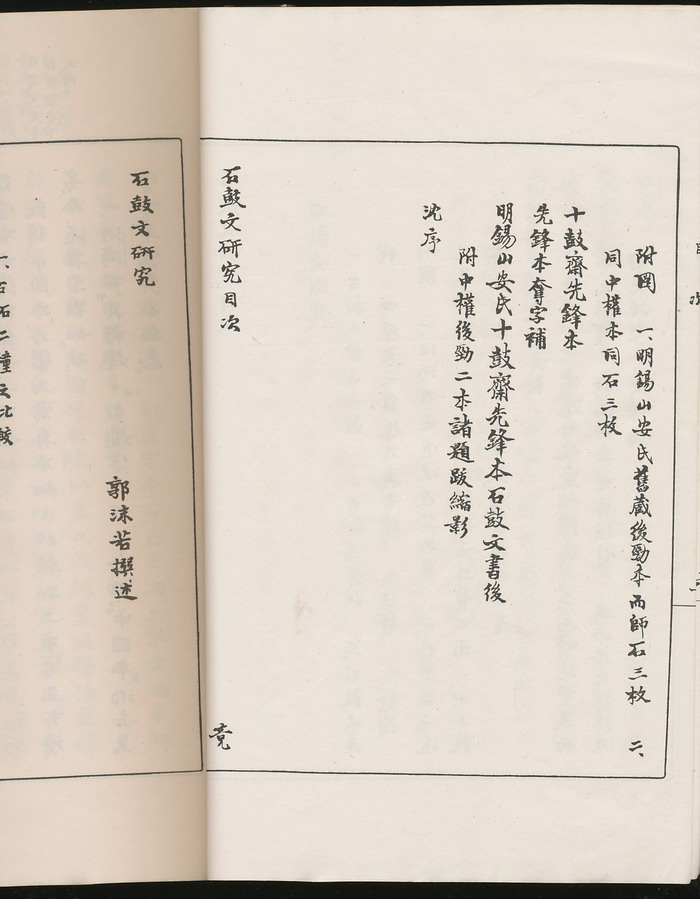 附圖 一、明錫山安氏舊藏後勁本而師石三枚 二、
同中權本同石三枚
十鼓齋先鋒本
先鋒本奪字補
明錫山安氏十鼓齋先鋒本石鼓文書後
附中權後勁二本諸題跋縮影
沈序
石鼓文研究目次 竟
石鼓文研究
郭沫若撰述
一、古石二種之比較